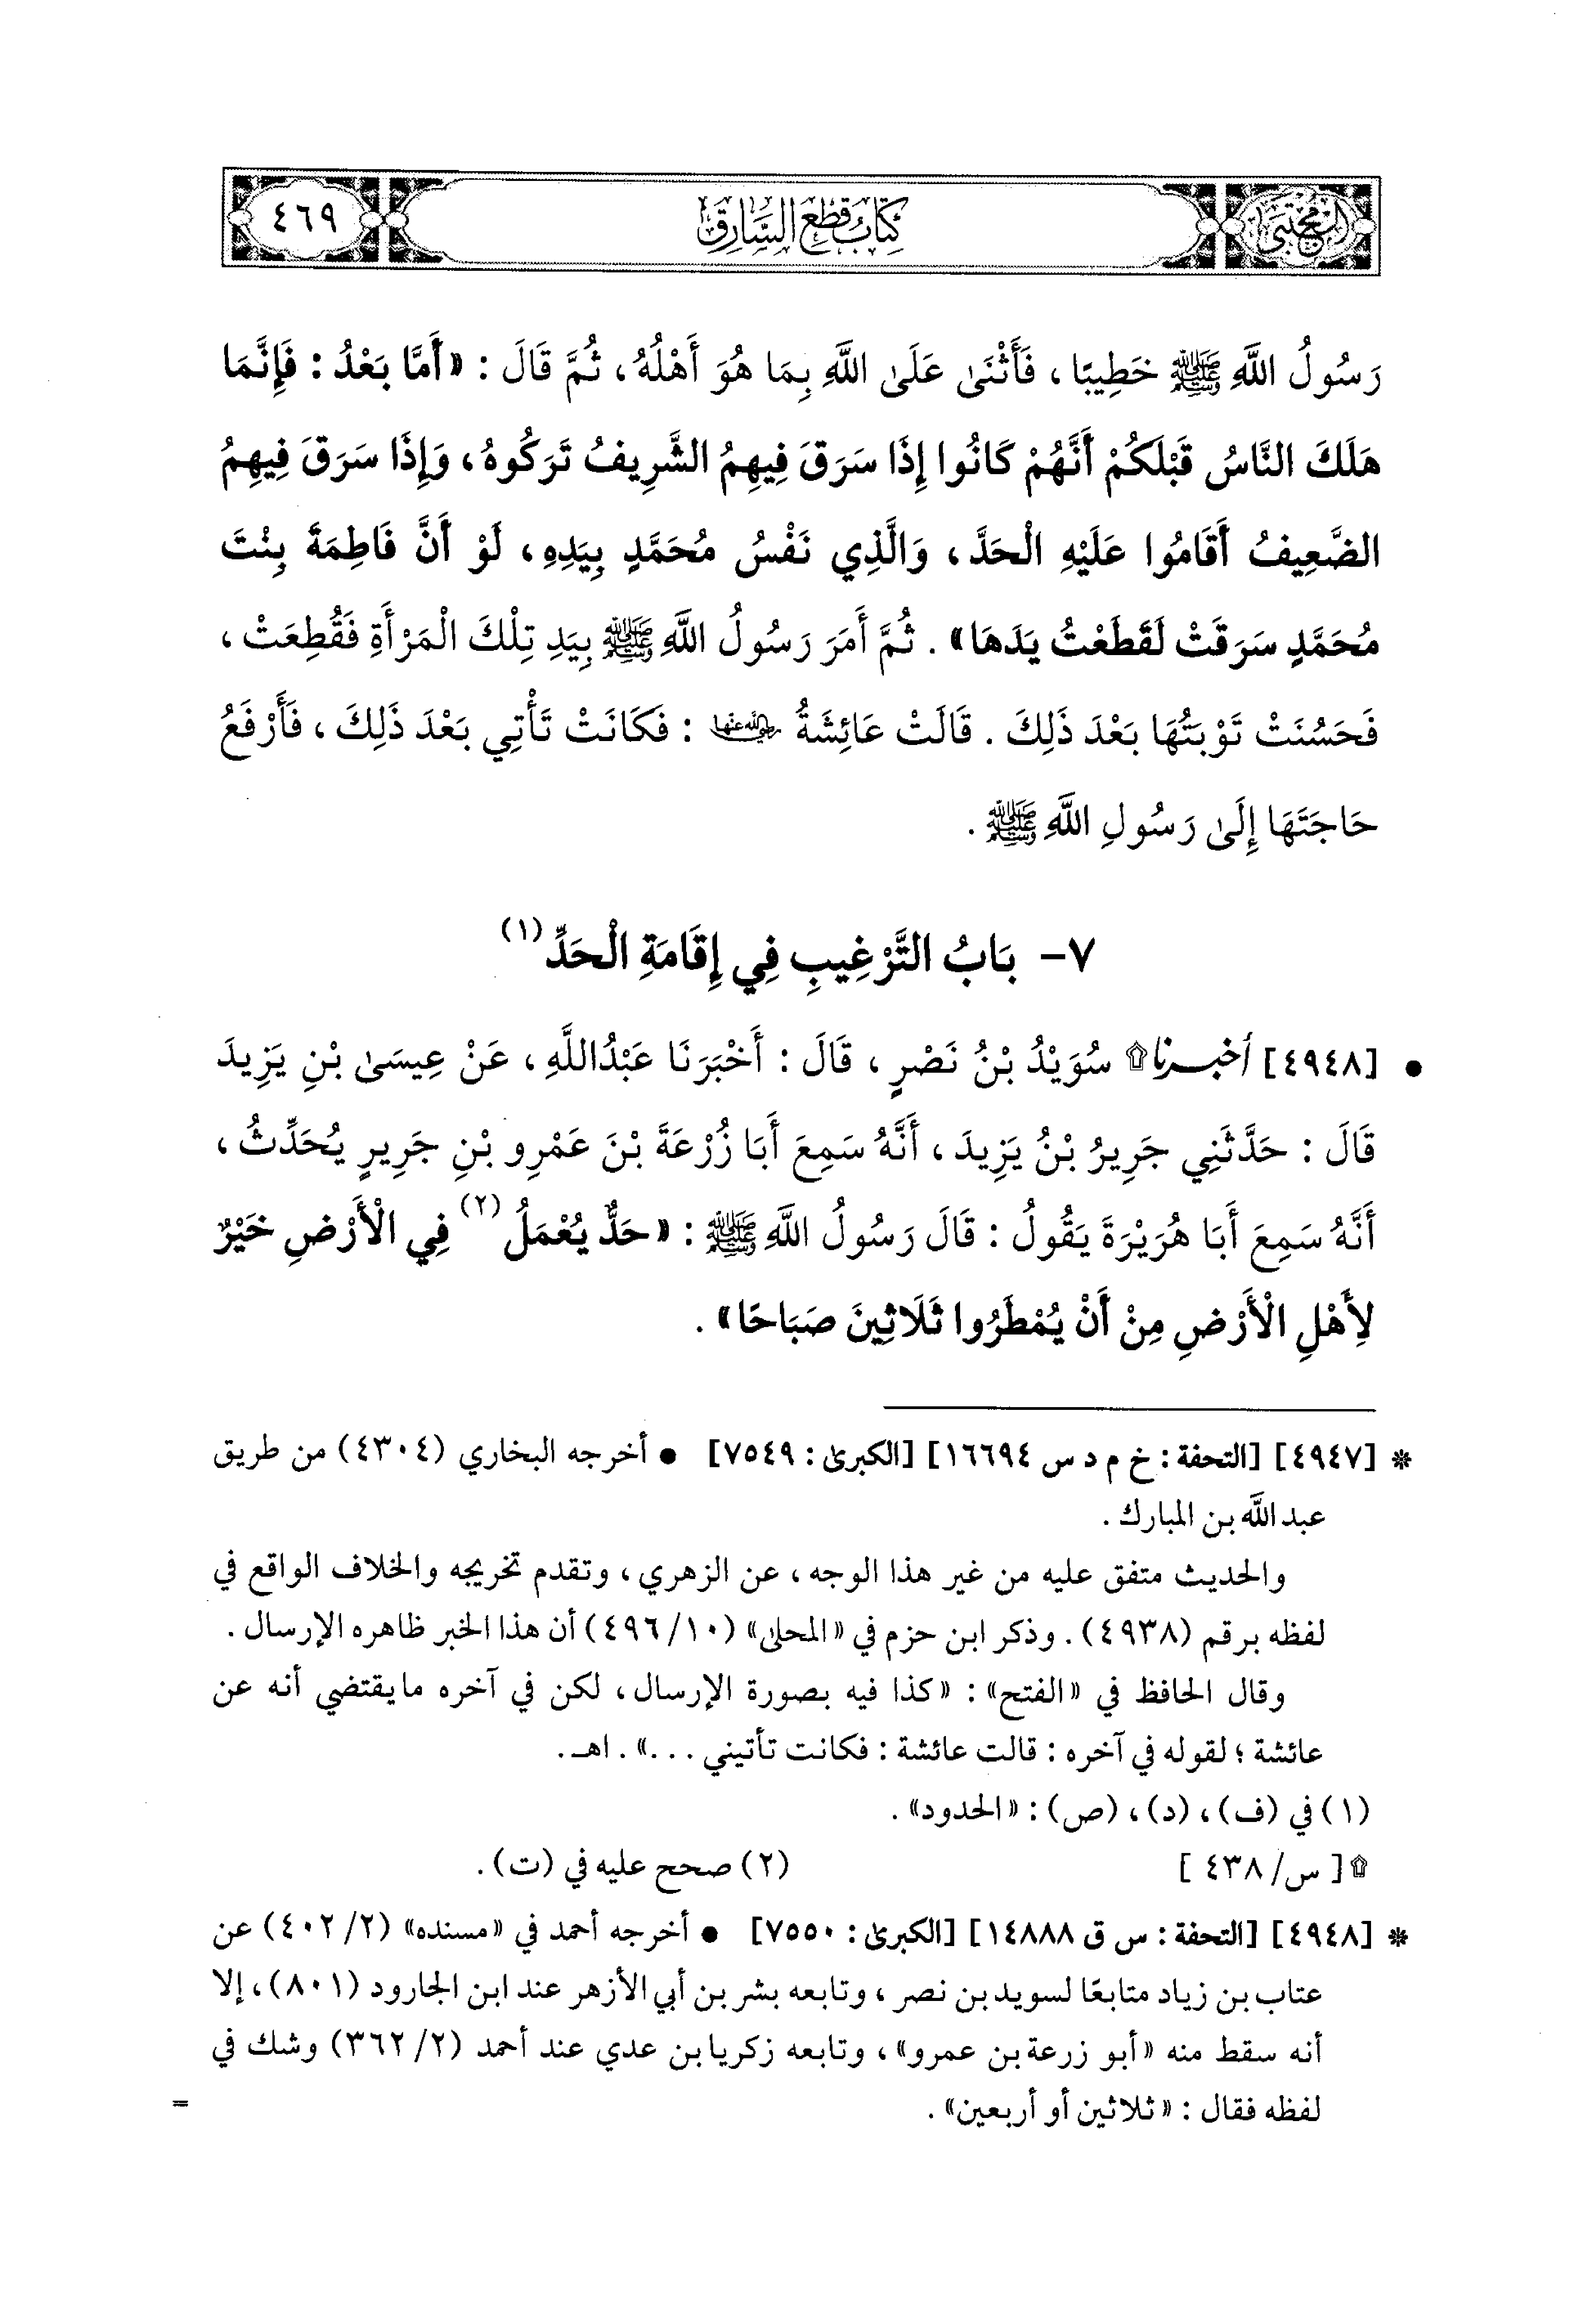 المجتبى
كتاب قطع السارق
٤٦٩
رَسُولُ اللَّهِ ﷺ خَطِيبًا، فَأَثْنَىٰ عَلَى اللَّهِ بِمَا هُوَ أَهْلُهُ، ثُمَّ قَالَ: «أَمَّا بَعْدُ: فَإِنَّمَا
هَلَكَ النَّاسُ قَبْلَكُمْ أَنَّهُمْ كَانُوا إِذَا سَرَقَ فِيهِمُ الشَّرِيفُ تَرَكُوهُ، وَإِذَا سَرَقَ فِيهِمُ
الضَّعِيفُ أَقَامُوا عَلَيْهِ الْحَدَّ، وَالَّذِي نَفْسُ مُحَمَّدٍ بِيَدِهِ، لَوْ أَنَّ فَاطِمَةَ بِنْتَ
مُحَمَّدٍ سَرَقَتْ لَقَطَعْتُ يَدَهَا». ثُمَّ أَمَرَ رَسُولُ اللَّهِ ﷺ بِيَدِ تِلْكَ الْمَرْأَةِ فَقُطِعَتْ،
فَحَسُنَتْ تَوْبَتُهَا بَعْدَ ذَلِكَ. قَالَتْ عَائِشَةُ رضي الله عنها: فَكَانَتْ تَأْتِي بَعْدَ ذَلِكَ، فَأَرْفَعُ
حَاجَتَهَا إِلَىٰ رَسُولِ اللَّهِ ﷺ.
٧- بَابُ التَّرْغِيبِ فِي إِقَامَةِ الْحَدِّ(١)
• [٤٩٤٨] أخبرنا۩ سُوَيْدُ بْنُ نَصْرٍ، قَالَ: أَخْبَرَنَا عَبْدُاللَّهِ، عَنْ عِيسَىٰ بْنِ يَزِيدَ
قَالَ: حَدَّثَنِي جَرِيرُ بْنُ يَزِيدَ، أَنَّهُ سَمِعَ أَبَا زُرْعَةَ بْنَ عَمْرِو بْنِ جَرِيرٍ يُحَدِّثُ،
أَنَّهُ سَمِعَ أَبَا هُرَيْرَةَ يَقُولُ: قَالَ رَسُولُ اللَّهِ ﷺ: «حَدٌّ يُعْمَلُ(٢) فِي الْأَرْضِ خَيْرٌ
لِأَهْلِ الْأَرْضِ مِنْ أَنْ يُمْطَرُوا ثَلَاثِينَ صَبَاحًا».
* [٤٩٤٧] [التحفة: خ م د س ١٦٦٩٤] [الكبرىٰ: ٧٥٤٩] • أخرجه البخاري (٤٣٠٤) من طريق
عبد اللَّه بن المبارك.
والحديث متفق عليه من غير هذا الوجه، عن الزهري، وتقدم تخريجه والخلاف الواقع في
لفظه برقم (٤٩٣٨). وذكر ابن حزم في «المحلىٰ» (١٠/ ٤٩٦) أن هذا الخبر ظاهره الإرسال.
وقال الحافظ في «الفتح»: «كذا فيه بصورة الإرسال، لكن في آخره ما يقتضي أنه عن
عائشة؛ لقوله في آخره: قالت عائشة: فكانت تأتيني ...». اهـ.
(١) في (ف)، (د)، (ص): «الحدود».
۩ [ س/ ٤٣٨ ]
(٢) صحح عليه في (ت).
* [٤٩٤٨] [التحفة: س ق ١٤٨٨٨] [الكبرىٰ: ٧٥٥٠] • أخرجه أحمد في «مسنده» (٢/ ٤٠٢) عن
عتاب بن زياد متابعًا لسويد بن نصر، وتابعه بشر بن أبي الأزهر عند ابن الجارود (٨٠١)، إلا
أنه سقط منه «أبو زرعة بن عمرو»، وتابعه زكريا بن عدي عند أحمد (٢/ ٣٦٢) وشك في
لفظه فقال: «ثلاثين أو أربعين».
=